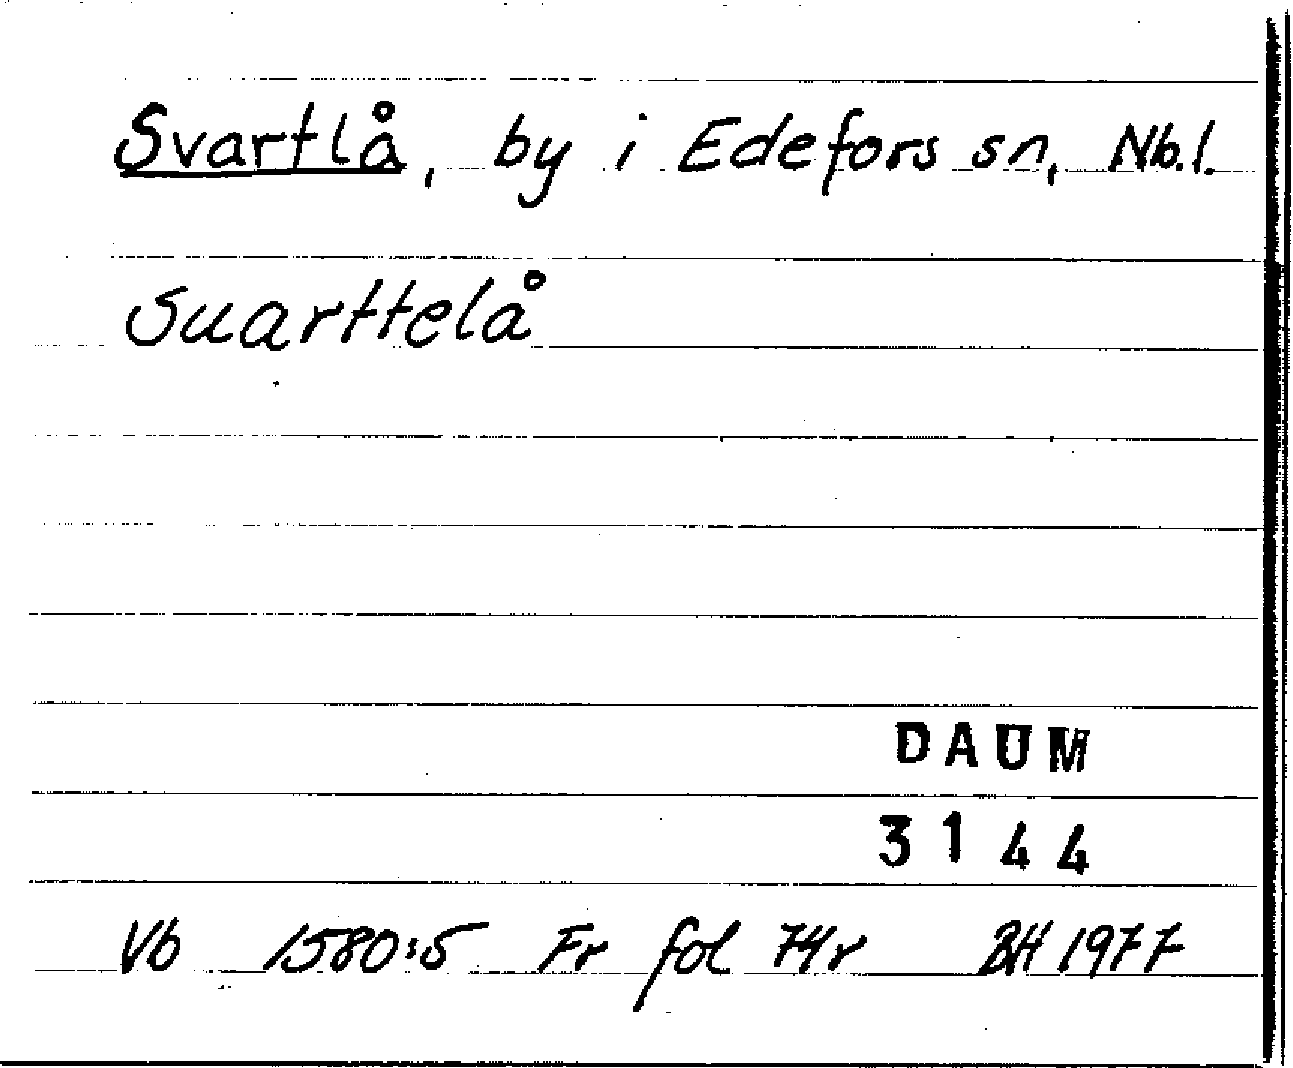 Svartlå, by i Edefors sn, Nb.l.
Suarttelå
DAUM
3144
Vb 1580:5 Fr fol 74r BH 1977